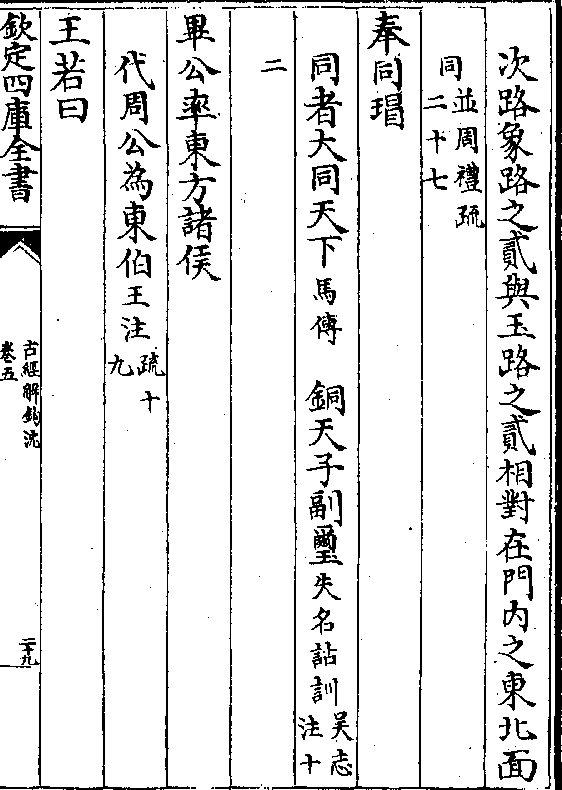 次路象路之貳與玉路之貳相對在門內之東北面
同並周禮疏
二十七
奉同瑁
同者大同天下馬傳　銅天子副璽失名詁訓吳志
注十
二
畢公率東方諸侯
代周公為東伯王注疏十
九
王若曰
欽定四庫全書
古經解鉤沈
卷五
二十九